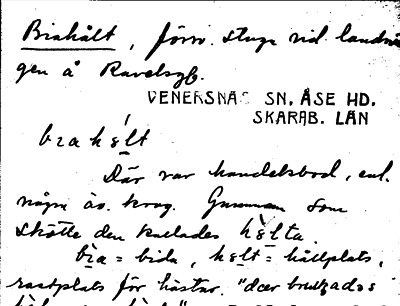 Brahält, förr. stuga vid landsvä
gen å Ravelsgb.
VENERSNÄS SN, ÅSE HD.
SKARAB. LÄN
brahélt
Där var handelsbod, enl.
några äv. krog. Gumman som
skötte den kallades hèlta.
bra = bida, helt = hållplats,
rastplats för hästar. "där brukades